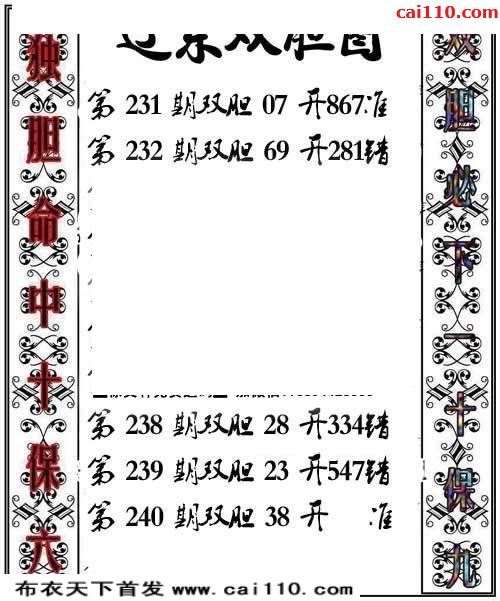 cai110.com
独胆命中十保六
双胆必下一十保九
第 231 期双胆 07 开867准
第 232 期双胆 69 开281错
第 238 期双胆 28 开334错
第 239 期双胆 23 开547错
第 240 期双胆 38 开 准
布衣天下首发 www.cai110.com